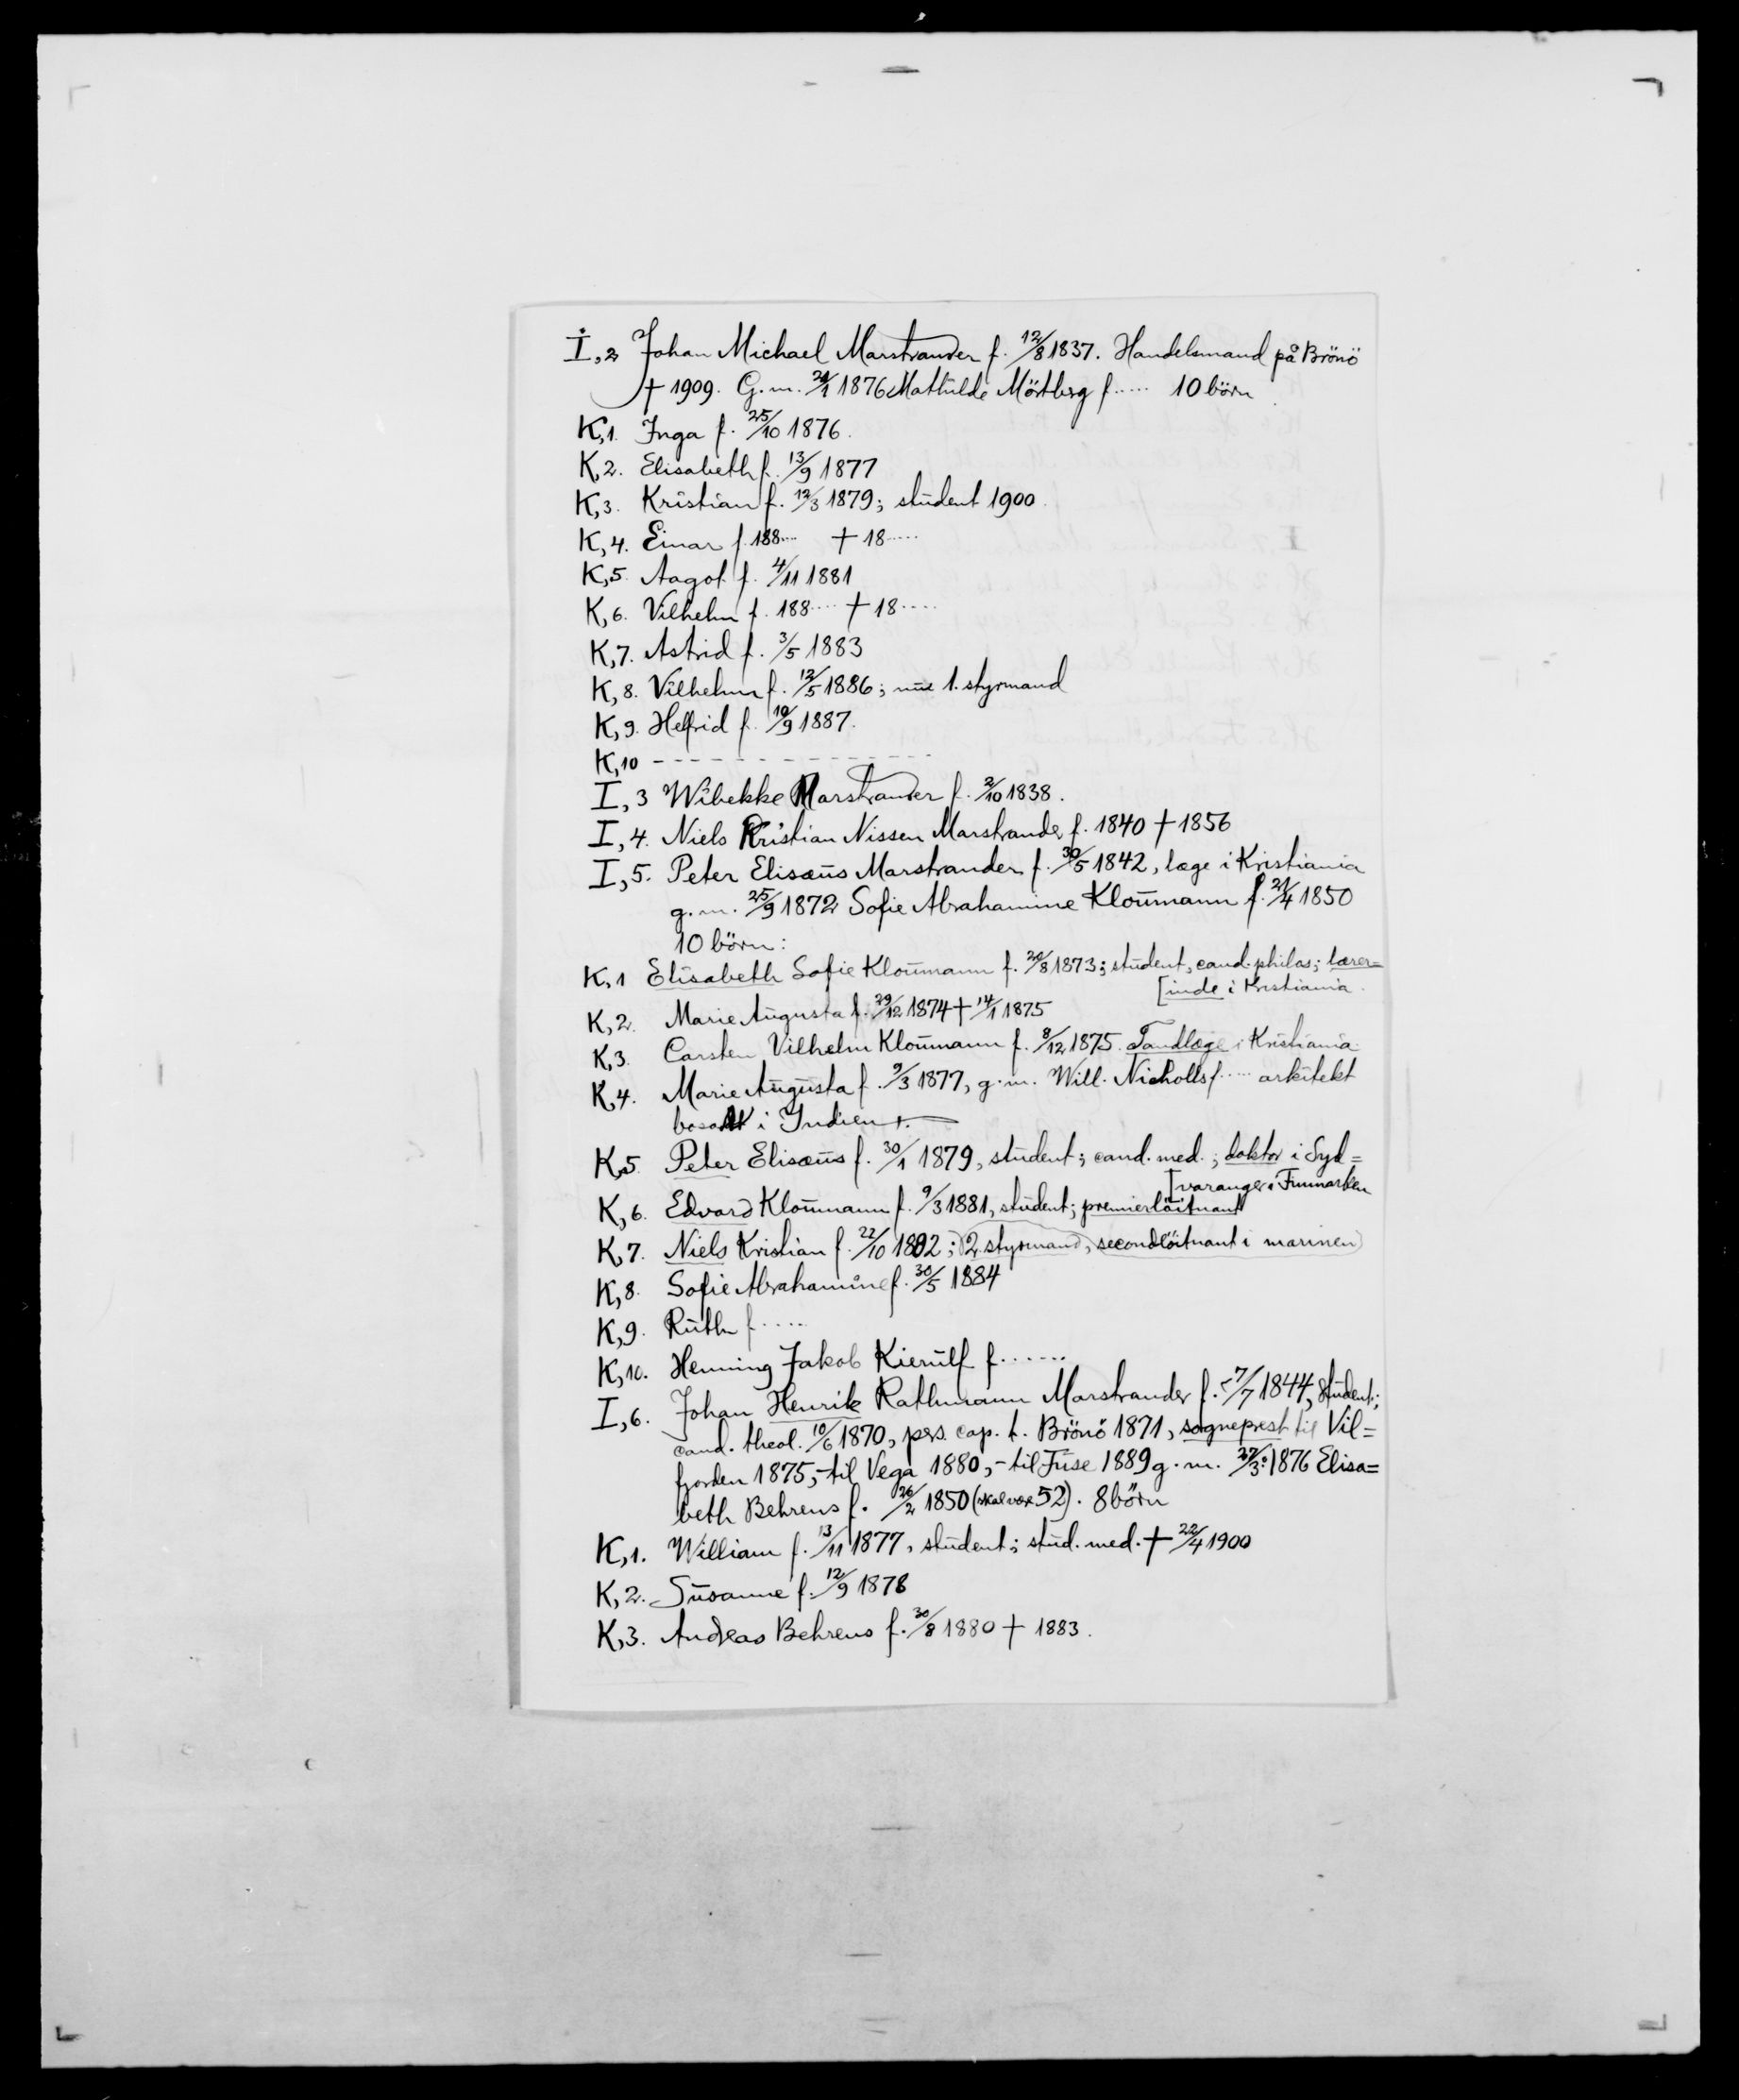 I,2 Johan Michael Marstrander f. 12/8 1837. Handelsmand på Brönö
† 1909. G.m. 21/1 1876 Mathilde Mörtberg f..... 10 börn
K,1. Inga f. 25/10 1876.
K,2. Elisabeth f. 13/9 1877
K,3. Kristian f. 12/3 1879; student 1900.
K,4. Einar f. 188.... † 18.....
K,5. Aagot f. 4/11 1881
K,6. Vilhelm f. 188.... † 18....
K,7. Astrid f. 3/5 1883
K,8. Vilhelm f. 12/5 1886; nu 1. styrmand
K,9. Helfrid f. 10/9 1887.
K,10 - - - - - - - - - - - - - -
I,3 Wibekke Marstrander f. 2/10 1838.
I,4. Niels Kristian Nissen Marstrander f. 1840 † 1856
I,5. Peter Elisæus Marstrander f. 30/5 1842, læge i Kristiania
g.m. 25/9 1872 Sofie Abrahamine Kloumann f. 21/4 1850
10 börn:
K,1 Elisabeth Sofie Kloumann f. 20/8 1873; student, cand. philos; lærer=
[inde i Kristiania.
K,2. Marie Augusta f. 29/12 1874 † 14/1 1875
K,3. Carsten Vilhelm Kloumann f. 8/12 1875. Tandlæge i Kristiania.
K,4. Marie Augusta f. 9/3 1877, g.m. Will. Nicholls f..... arkitekt
bosatt i Indien
K,5. Peter Elisæus f. 30/1 1879, student; cand. med.; doktor i Syd=
[varanger i Finmarken
K,6. Edvard Kloumann f. 9/3 1881, student; premierlöitnant
K,7. Niels Kristian f. 22/10 1882; 2. styrmand, secondlöitnant i marinen
K,8. Sofie Abrahamine f. 30/5 1884
K,9. Ruth f.....
K,10. Henning Jakob Kierulf f......
I,6. Johan Henrik Rathmann Marstrander f. 7/7 1844, student;
cand. theol. 10/6 1870, pers. cap. t. Brönö 1871, sogneprest til Vil=
fjorden 1875,- til Vega 1880,- til Fuse 1889 g.m. 27/3 1876 Elisa=
beth Behrens f. 26/2 1850 (skal være 52). 8 börn
K,1. William f. 13/11 1877, student; stud. med. † 22/4 1900
K,2. Susanne f. 12/9 1878
K,3. Andreas Behrens f. 30/8 1880 † 1883.